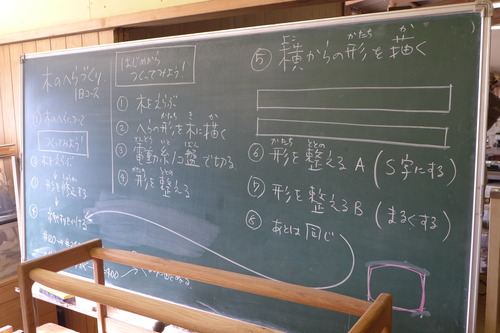 木のへらづくり
1日コース
つくってみよう!
② 木をえらぶ
③ 形を修正する
はじめから
つくってみよう!
① 木をえらぶ
② へらの形を木に描く
③ 電動糸ノコ盤で切る
④ 形を整える
⑤ 横からの形を描く
⑥ 形を整えるA(S字にする)
⑦ 形を整えるB(まるくする)
⑧ あとは同じ